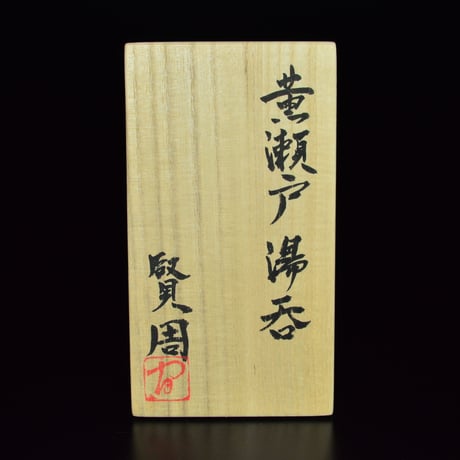 黄瀬戸 湯呑
賢周